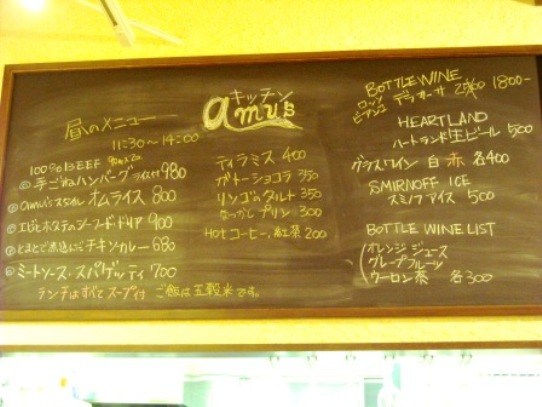 昼のメニュー
11:30〜14:00
100% BEEF
手ごねハンバーグ ライス付 980
amu'sスタイル オムライス 800
エビとホタテのシーフードドリア 900
とまとで煮込んだチキンカレー 680
ミートソース・スパゲッティ 700
ランチはすべてスープ付 ご飯は五穀米です。
キッチン
amu's
ティラミス 400
ガトーショコラ 350
リンゴのタルト 350
なつかしプリン 300
HOTコーヒー、紅茶 200
BOTTLE WINE
ロッソ
ビアンコ
デラ カーサ
1800-
HEARTLAND
ハートランド生ビール 500
グラスワイン 白 赤 各400
SMIRNOFF ICE
スミノフアイス 500
BOTTLE WINE LIST
オレンジジュース
グレープフルーツ
ウーロン茶 各300